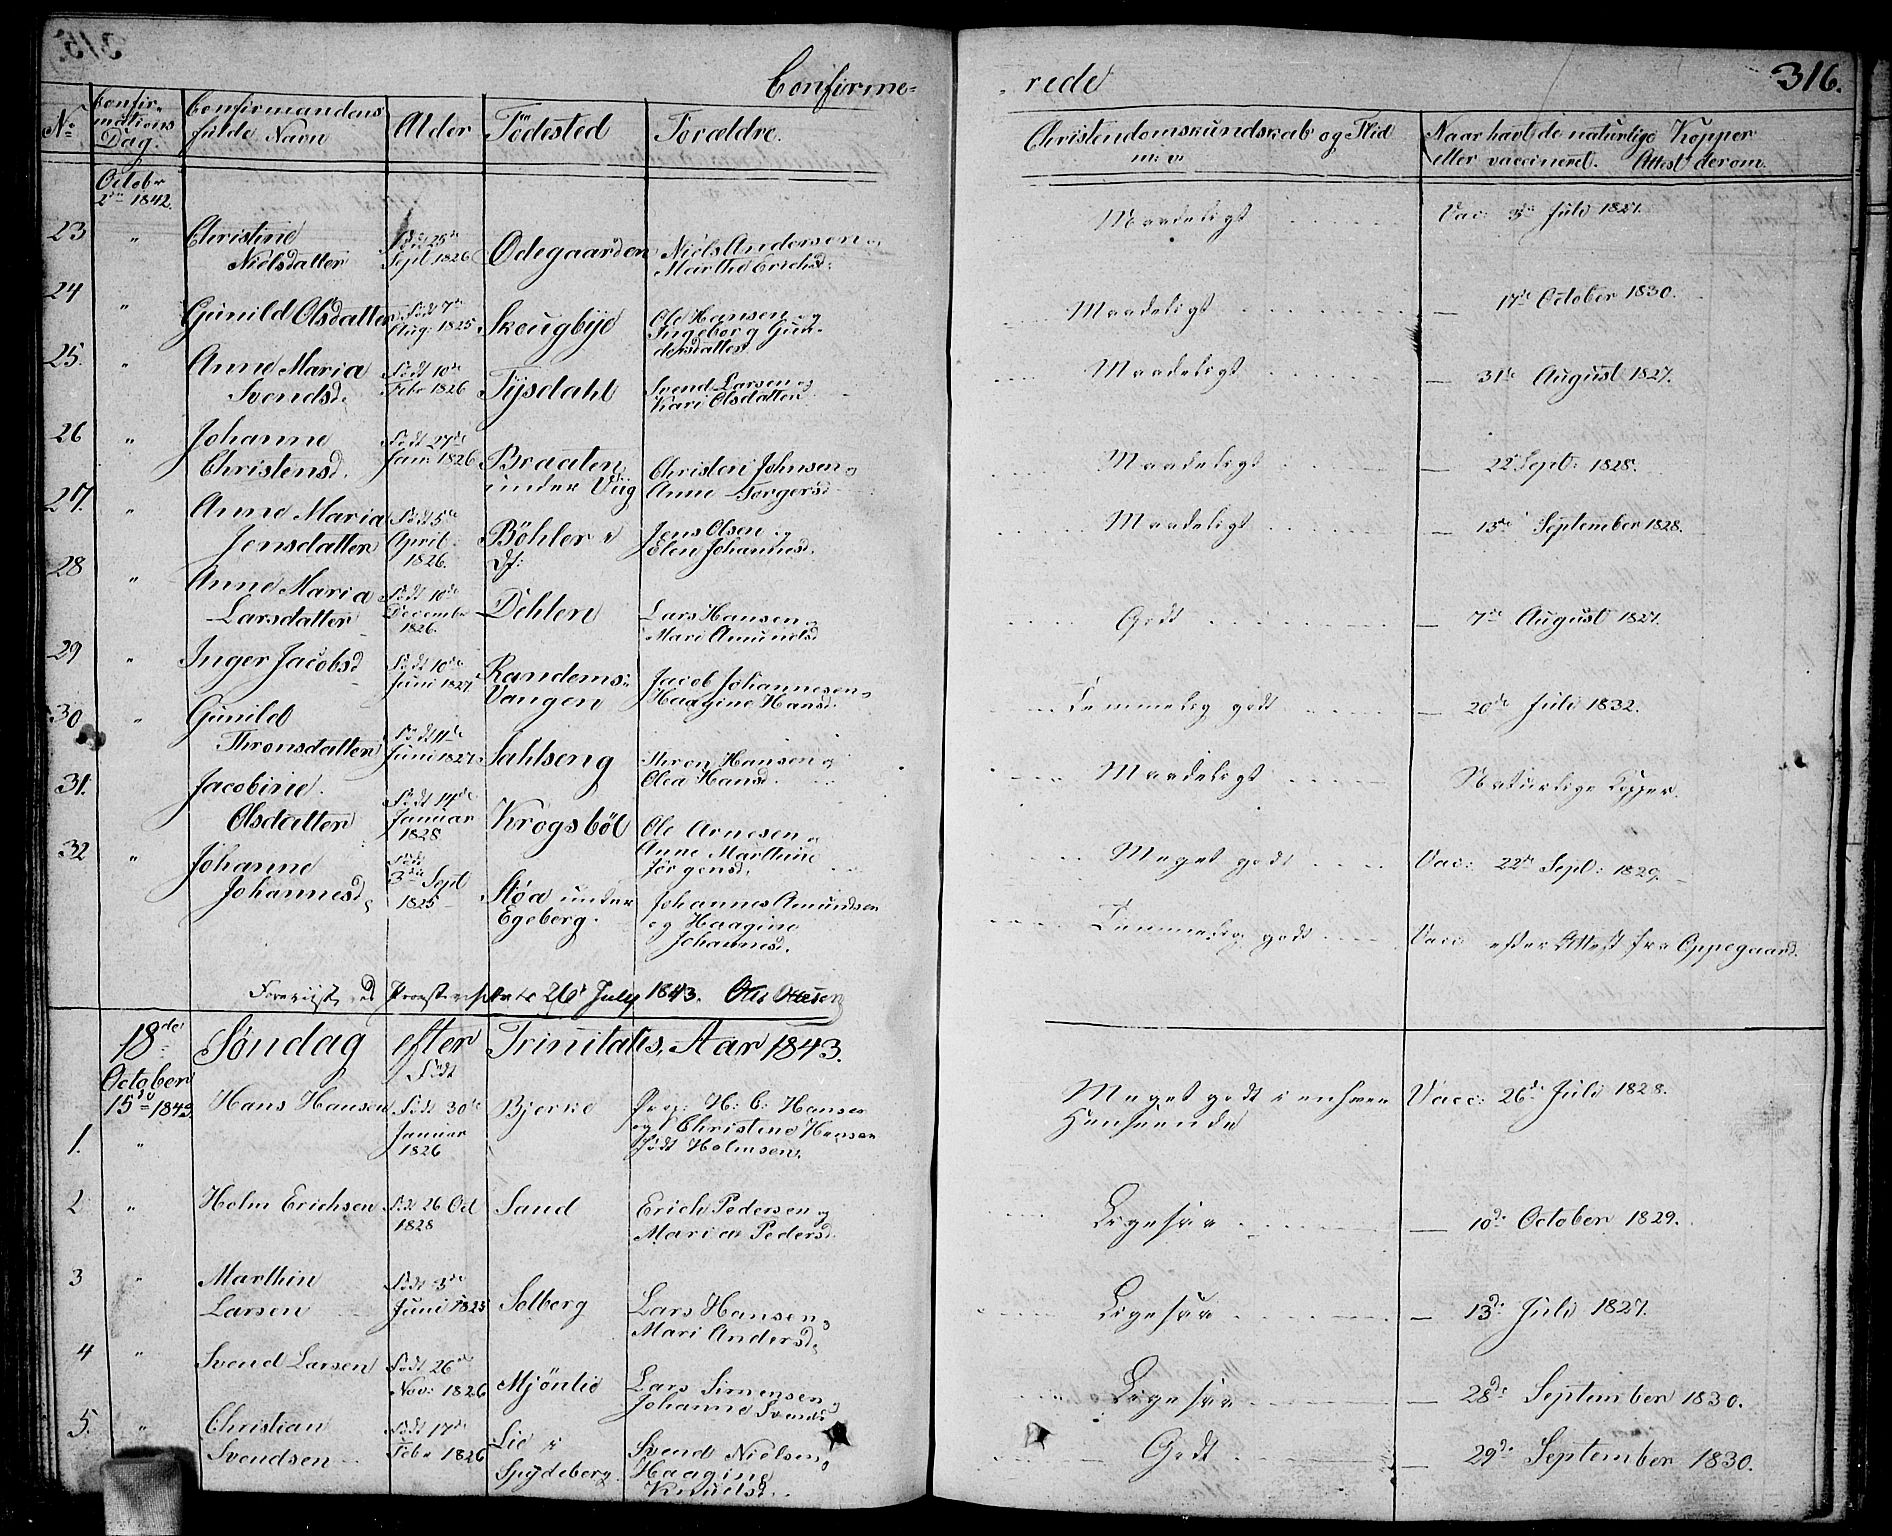 316.
Confirme=
rede
No
Confir-
mations
Dag.
Confirmandens
fulde Navn
Alder
Födested
Forældre.
Christendomskundskab og Flid
m: v:
Naar havt de naturlige Kopper
eller vaccineret. Attest derom.
Octobr
2den 1842.
23 " Christine
Nielsdatter
Född 25de
Sept 1826
Odegaarden
Niels Andersen og
Marthe Erichsd:
Maadeligt
Vac: 3de Juli 1827.
24 " Gunild Olsdatter
Född 7de
Aug: 1825
Skougbye
Ole Hansen og
Ingeborg Gun-
dersdatter
Maadeligt
— 17de October 1830.
25. " Anne Maria
Svendsd.
Födt 10de
Febr 1826
Tysdahl
Svend Larsen og
Kari Olsdatter
Maadeligt
— 31te August 1827.
26 " Johanne
Christensd.
Födt 27de
Jan: 1826
Braaten
under Viig
Christen Johnsen og
Anne Torgersd
Maadeligt
— 22 Sept: 1828.
27. " Anne Maria
Jensdatter
Födt 5te
April
1826.
Böhler i
Df:
Jens Olsen og
Elen Johannesd.
Maadeligt
— 13de September 1828.
28 " Anne Maria
Larsdatter
Födt 10de
Decembr
1826.
Dehlen
Lars Hansen og
Mari Amundsd
Godt
— 7de August 1827.
29 " Inger Jacobsd
Födt 10de
Juni 1827
Randems=
Vangen
Jacob Johannesen og
Haagine Hansd.
Temmelig godt
— 20de Juli 1832.
30 " Gunild
Thronsdatter
Födt 11te
Juni 1827
Sahlseng
Thron Hansen og
Olea Hansd.
Maadeligt
Naturlige Kopper.
31. " Jacobine
Olsdatter
Födt 14de
Januar
1828
Krogsböl
Ole Arnesen og
Anne Marthine
Jörgensd.
Meget godt
Vac: 22de Sept: 1829.
32 " Johanne
Johannesd.
Födt
3die Sept
1825
Støa under
Egeberg.
Johannes Amundsen
og Haagine
Johannesd.
Temmelig godt
Vacc efter Attest fra Oppegaard.
26 July 1843. Ottesen
18de Søndag efter Trinitatis, Aar 1843.
October
15de 1843
Födt
1. " Hans Hansen
Födt 30te
Januar
1826
Bjerke
Prop: H: C: Hansen
og Christine Hansen
födt Holmsen.
Meget godt i enhver
Henseende
Vacc: 26de Juli 1828.
2 " Holm Erichsen
Föd 26 Oct
1828
Sand
Erich Pedersen og
Maria Pedersd.
Ligesaa
— 10de October 1829.
3 " Marthin
Larsen
Födt 3de
Juni 1825
Solberg
Lars Hansen og
Mari Andersd.
Ligesaa
— 13de Juli 1827.
4 " Svend Larsen
Födt 26de
Nov: 1826
Mjönlie
Lars Simensen og
Johanne Svendsd
Ligesaa
— 28de September 1830.
5. " Christian
Svendsen
Födt 17de
Febr 1826
Lie i
Spydeberg.
Svend Nielsen og
Haagine
Knudsd.
Godt
— 29de September 1830.